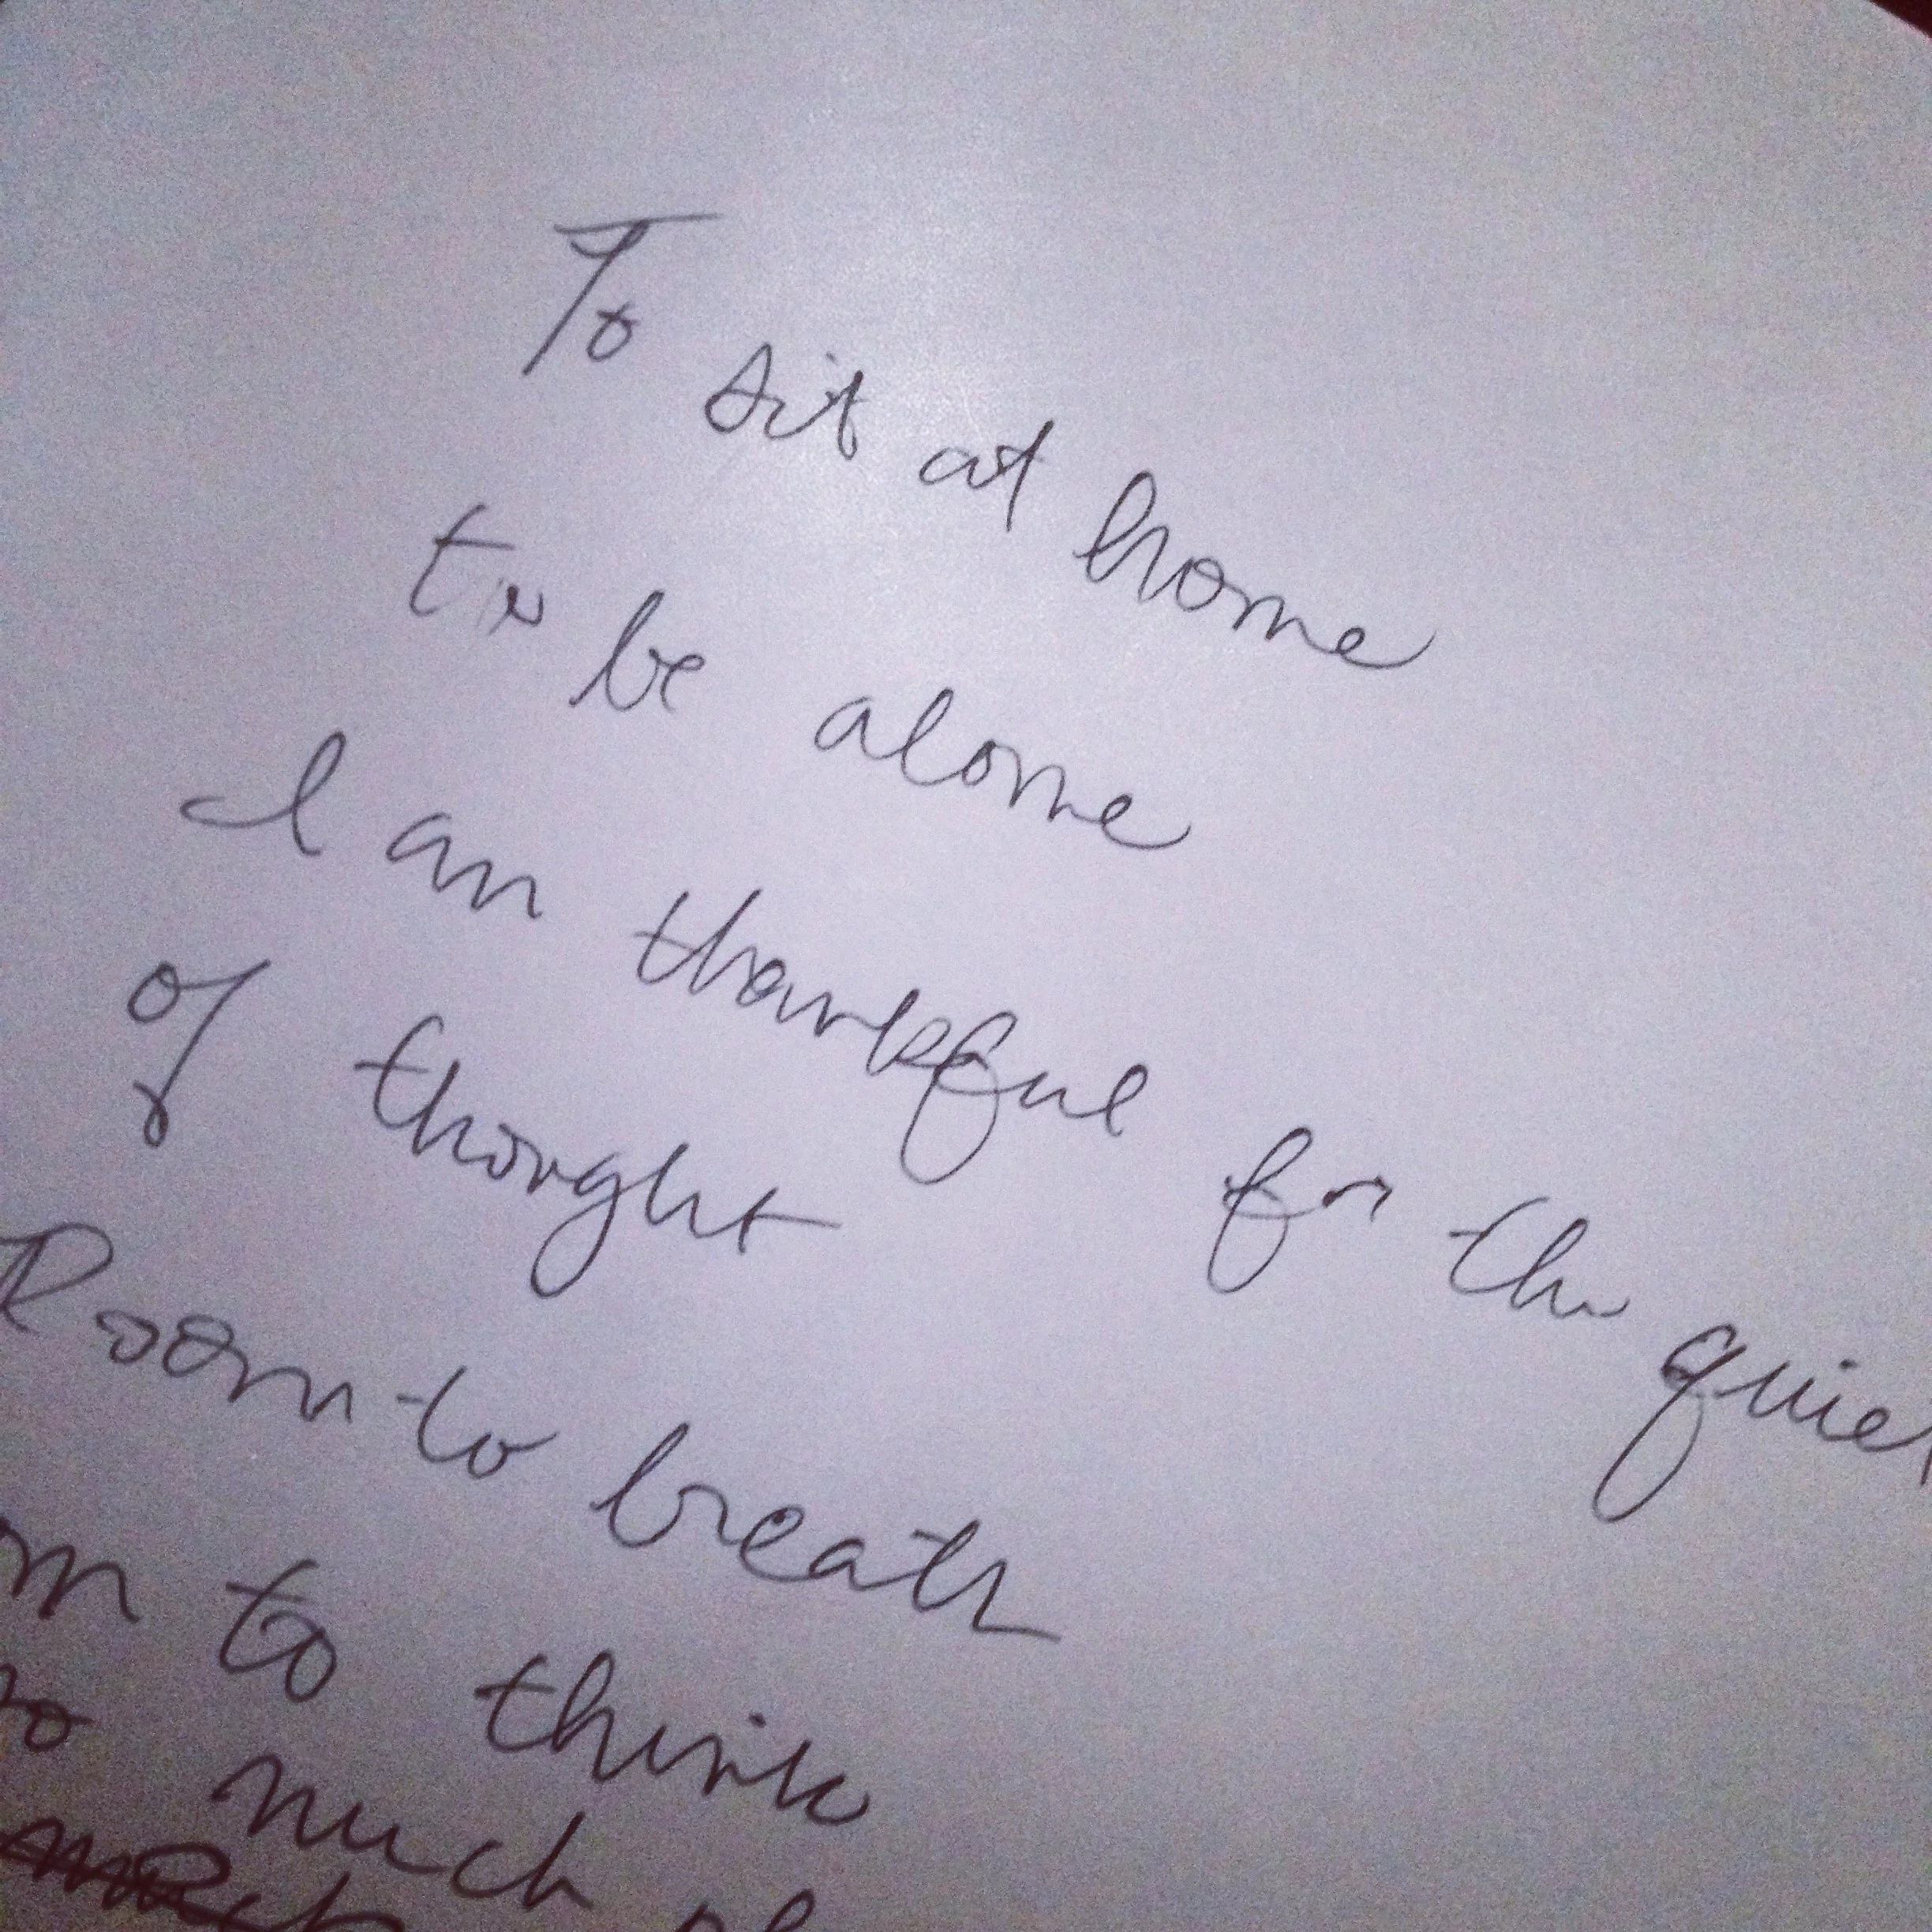 To sit at home
to be alone
I am thankful for the quiet
of thought
Room to breath
to think
much